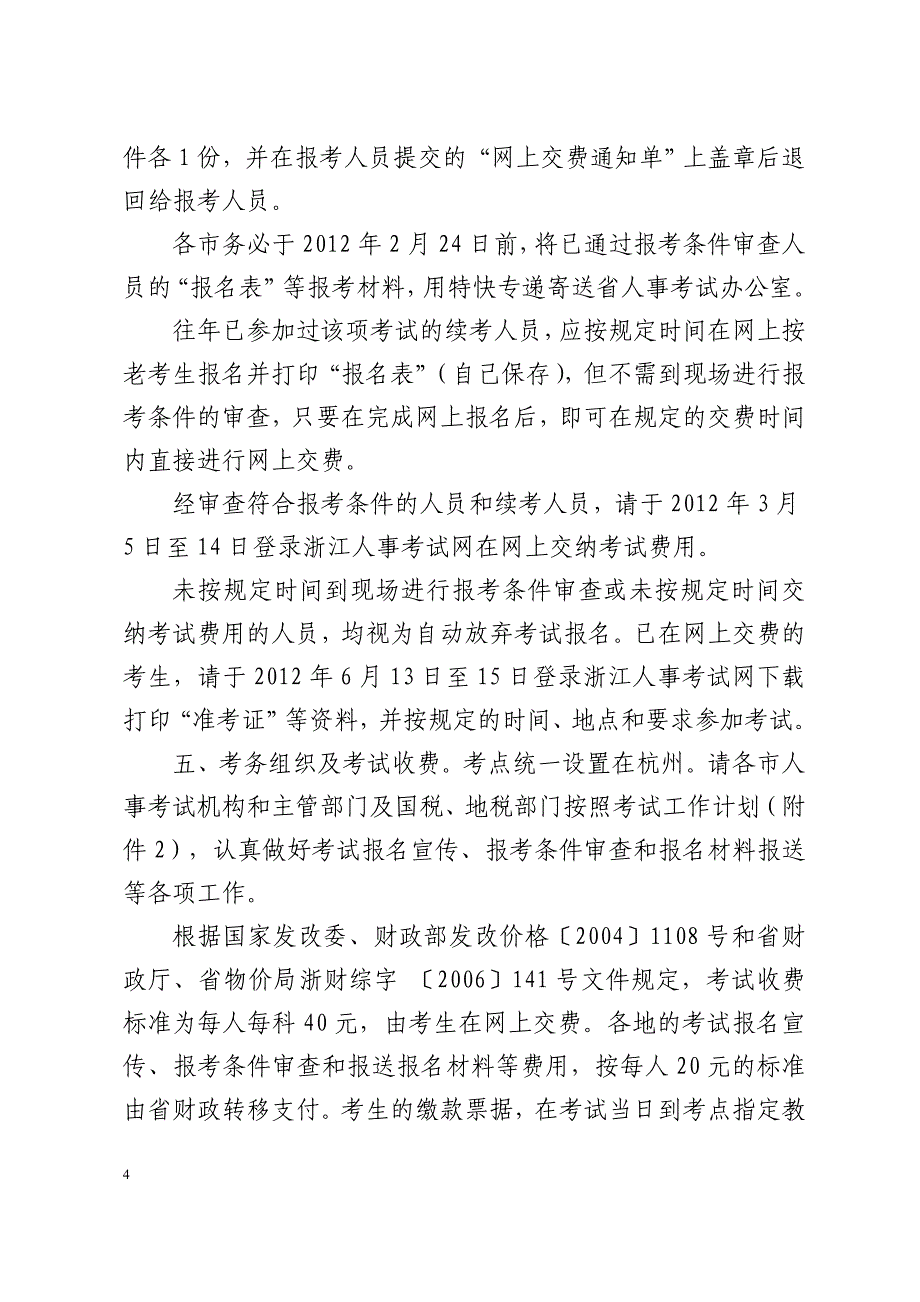 件各1份，并在报考人员提交的“网上交费通知单”上盖章后退
回给报考人员。
各市务必于2012年2月24日前，将已通过报考条件审查人
员的“报名表”等报考材料，用特快专递寄送省人事考试办公室。
往年已参加过该项考试的续考人员，应按规定时间在网上按
老考生报名并打印“报名表”（自己保存），但不需到现场进行报
考条件的审查，只要在完成网上报名后，即可在规定的交费时间
内直接进行网上交费。
经审查符合报考条件的人员和续考人员，请于2012年3月
5日至14日登录浙江人事考试网在网上交纳考试费用。
未按规定时间到现场进行报考条件审查或未按规定时间交
纳考试费用的人员，均视为自动放弃考试报名。已在网上交费的
考生，请于2012年6月13日至15日登录浙江人事考试网下载
打印“准考证”等资料，并按规定的时间、地点和要求参加考试。
五、考务组织及考试收费。考点统一设置在杭州。请各市人
事考试机构和主管部门及国税、地税部门按照考试工作计划（附
件2），认真做好考试报名宣传、报考条件审查和报名材料报送
等各项工作。
根据国家发改委、财政部发改价格〔2004〕1108号和省财
政厅、省物价局浙财综字 〔2006〕141号文件规定，考试收费
标准为每人每科40元，由考生在网上交费。各地的考试报名宣
传、报考条件审查和报送报名材料等费用，按每人20元的标准
由省财政转移支付。考生的缴款票据，在考试当日到考点指定教
4